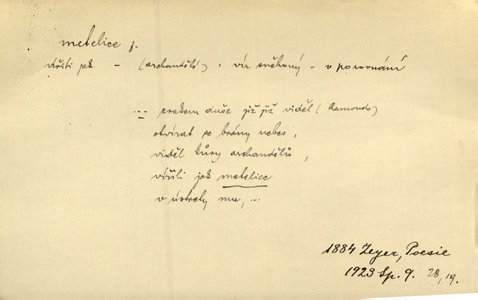 metelice f.
vířiti jak – (archandělé), vír sněhový – v porovnání
... zrakem duše již již viděl (Ramondo)
otvírat se brány nebes,
viděl kůry archandělů,
vířili jak metelice
v ústrety mu, ...
1884 Zeyer, Poesie
1923 Sp. 9. 28, 19.